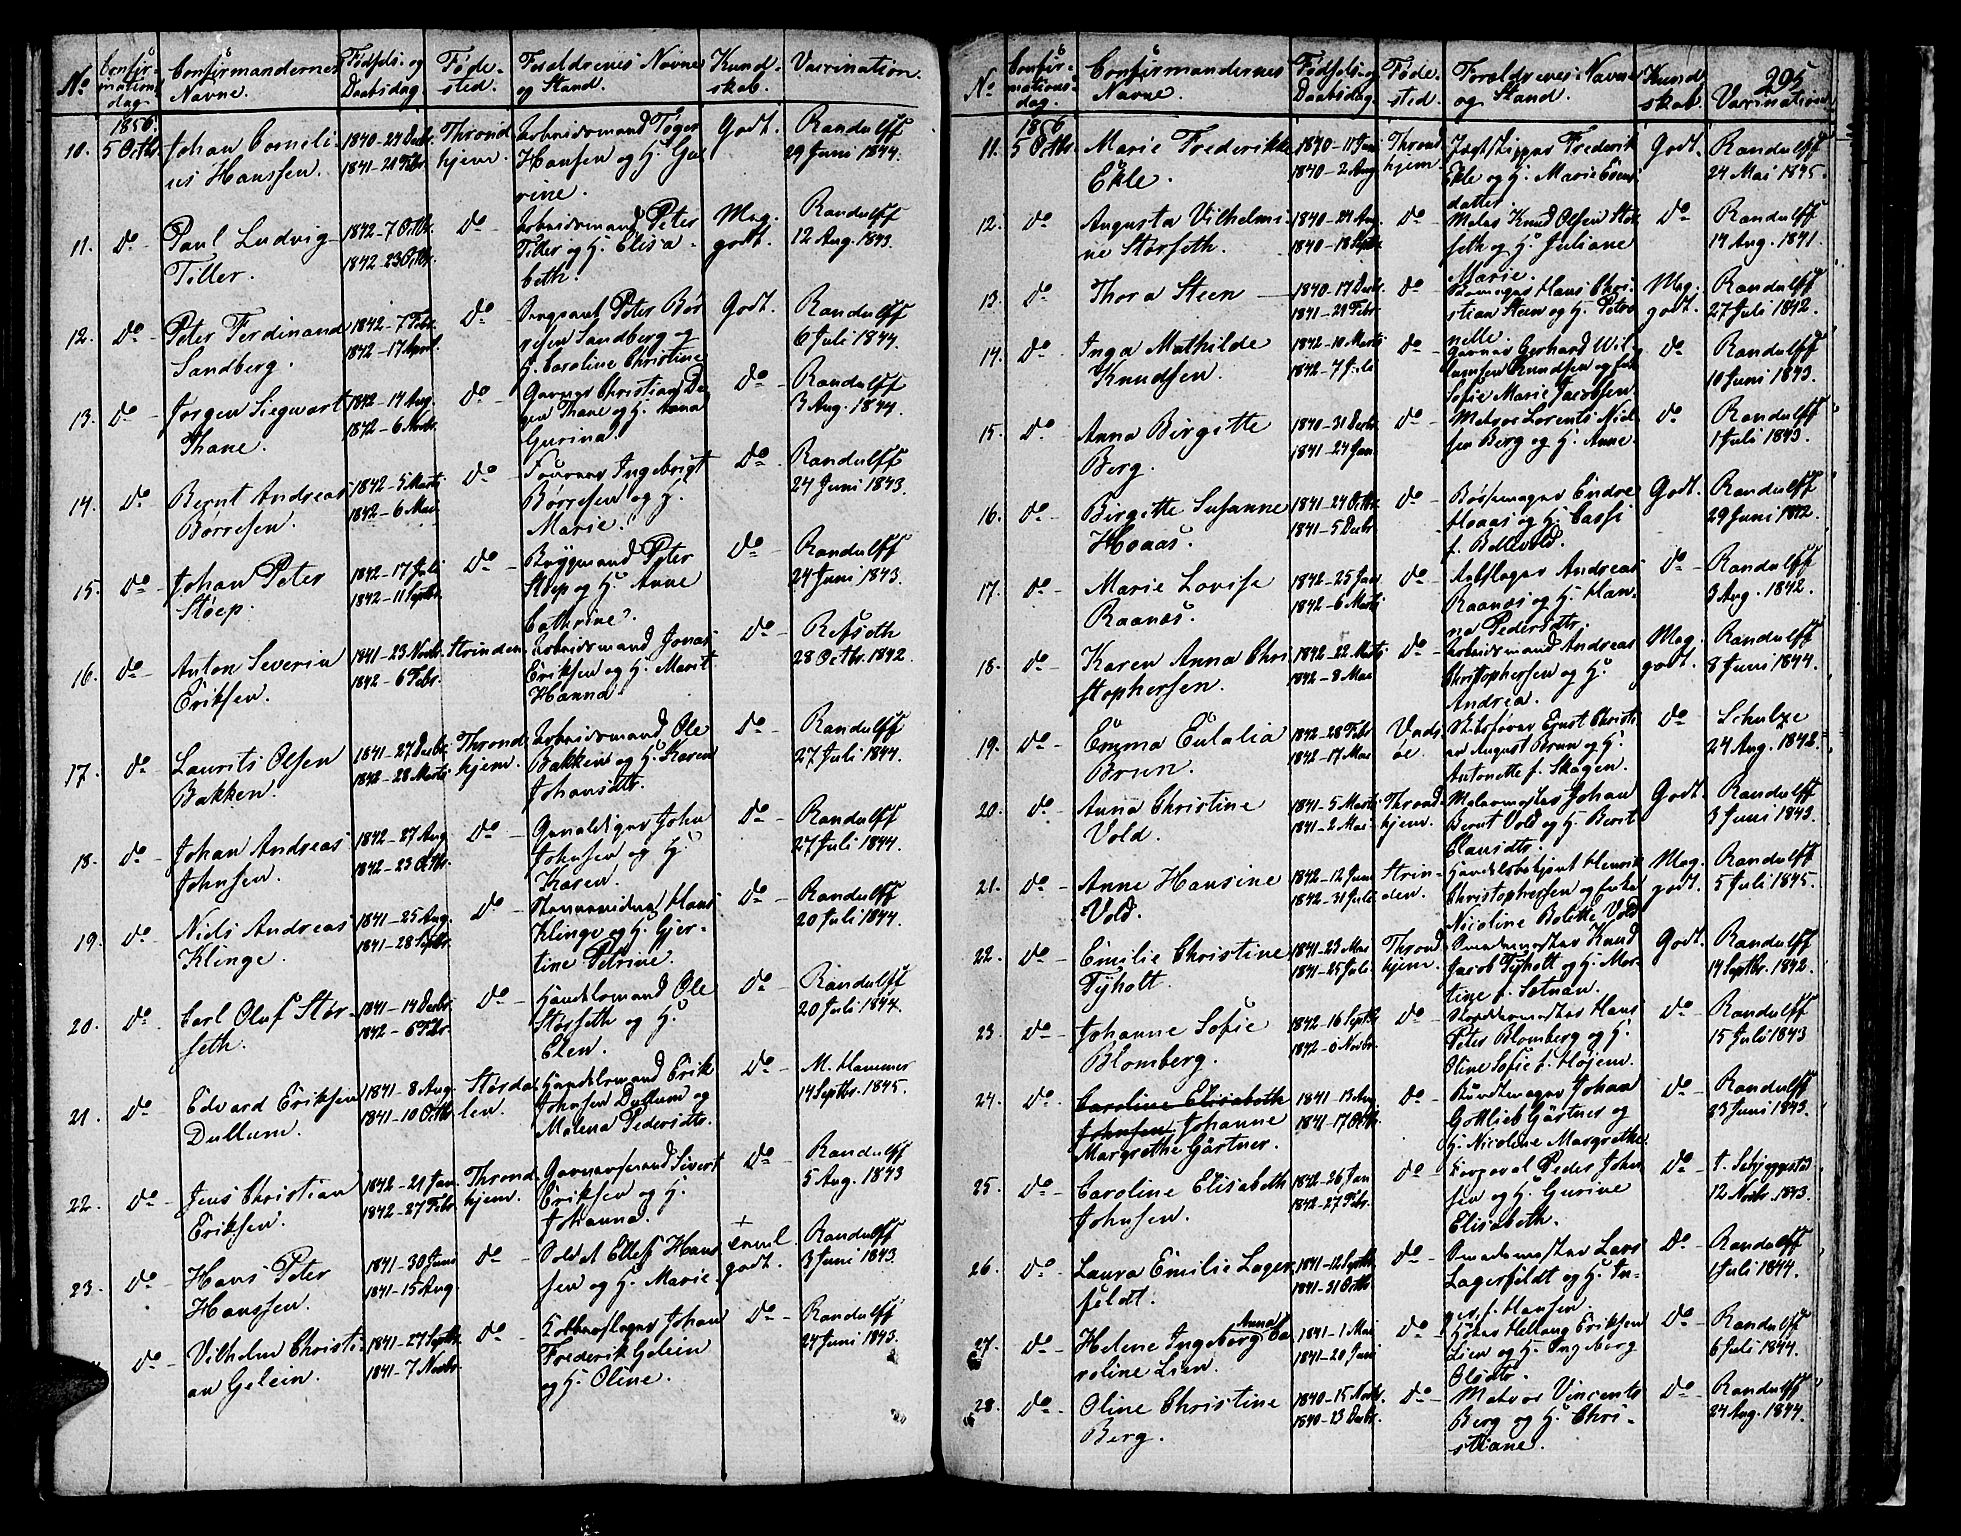 No. Confirmations dag. Confirmandernes Navne. Fødsels- og Daabsdag. Føde-sted. Forældrenes Navne og Stand. Kund-skab. Vaccination.
1856.
10. 5 Octbr. Johan Corneli- 1840-27 Decbr. Thrond- Arbeidsmand Godt. Randulff
us Hanssen. 1841-21 Febr. hjem. Hansen og H. 29 Juni 1844.
11. do Paul Ludvig 1842-7 Octbr. do Arbeidsmand Peter Meg. Randulff
Tiller. 1842-23 Octbr. Tiller og H. Elisa- godt. 12 Aug. 1843.
beth.
12. do Peter Ferdinand 1842-7 Febr. do Peter Bør Godt. Randulff
Sandberg. 1842-17 April. resen Sandberg og 6 Juli 1844.
H. Caroline Christine
13. do Jørgen Siegwart 1842-14 Aug. do Christian do Randulff
Thane. 1842-6 Novbr. Thane og H. Anna 3 Aug. 1844.
Gurina.
14. do Bernt Andreas 1842-5 Marts do Ingebrigt do Randulff
Børresen. 1842-6 Mai Børresen og H. 24 Juni 1843.
Marie.
15. do Johan Peter 1842-17 Juli do Bryggmand Peter do Randulff
Støep. 1842-11 Septbr. Støep og H. Anne 24 Juni 1843.
Cathrine.
16. do Anton Severin 1841-23 Novbr. Strinden. Arbeidsmand Jonas do
Eriksen. 1842-6 Febr. Eriksen og H. Marit 28 Octbr. 1842.
Hanna
17. do Laurits Olsen 1841-27 Decbr. Thrond- Arbeidsmand Ole do Randulff
Bakken. 1842-28 Marts hjem. Bakken og H. Karen 27 Juli 1844.
Johansdtr.
18. do Johan Andreas 1842-27 Aug do John do Randulff
Johnsen. 1842-23 Octbr. Johnsen og H. 27 Juli 1844.
Karen.
19. do Niels Andreas 1841-25 Aug. do Hans do Randulff
Klinge. 1841-28 Septbr. Klinge og H. Gjer- 20 Juli 1844.
tine Petrine.
20. do Carl Oluf Stør- 1841-14 Decbr. do Handelsmand Ole do Randulff
seth. 1842-6 Febr. Størseth og H. 20 Juli 1844.
Elen.
21. do Edvard Eriksen 1841-8 Aug. Størda- Handelsmand Erik do M. Hammer
Dullum. 1841-10 Octbr. len. Johnsen Dullum og 14 Septbr. 1845.
Malena Pedersdtr.
22. do Jens Christian 1842-21 Jan. Thrond- Sivert do Randulff
Eriksen. 1842-27 Febr. hjem. Eriksen og H. 5 Aug. 1843
Johanna.
23. do Hans Peter 1841-30 Juni do Soldat Ellef Hans Randulff
Hanssen. 1841-15 Aug. sen og H. Marie godt. 3 Juni 1843.
do Vilhelm Christi- 1841-27 Septbr. do Kobberslager Johan do Randulff
an Gelein. 1841-7 Novbr. Frederik Gelein 24 Juni 1843.
og H. Oline.
295
No. Confirmations dag. Confirmandernes Navne. Fødsels- og Daabsdag. Føde-sted. Forældrenes Navne og Stand. Kund-skab. Vaccination.
1856
11. 5 Octbr. Marie Frederikke 1840-11 Juni Thrond- Jægtskipper Frederik Godt. Randulff
Ekle. 1840-2 Aug. hjem. Ekle og H. Marie 24 Mai 1845.
datter.
12. do Augusta Vilhelmi- 1840-24 Aug. do Knud Olsen Stør do Randulff
ne Størseth. 1840-18 Septbr. seth og H. Juliane 14 Aug. 1841.
Marie.
13. do Thora Steen 1840-17 Decbr. do Hans Chri- Meg. Randulff
1841-21 Febr. stian Steen og H. Petro godt. 27 Juli 1842.
nelle.
14. do Inga Mathilde 1842-10 Marts do Gerhard Wil- do Randulff
Knudsen. 1842-7 Juli Knudsen og 10 Juni 1843.
Sofie Marie Jacobsen.
15. do Anna Birgitte 1840-31 Decbr. do Matros Lorents Niel- do Randulff
Berg. 1841-24 Jan. sen Berg og H. Anne 1 Juli 1843.
16. do Birgitte Susanne 1841-24 Octbr. do Bøssemager Endre Godt. Randulff
Hoaas. 1841-5 Decbr. Hoaas og H. 29 Juni 1842.
f. Bellevold.
17. do Marie Lovise 1842-25 Jan do Andreas do Randulff
Raanes. 1842-6 Marts Raanes og H. Han- 3 Aug. 1842.
na Pedersdtr.
18. do Karen Anna Chri- 1842-22 Marts do Arbeidsmand Andreas Meg. Randulff
stophersen. 1842-8 Mai Christophersen og H. godt. 8 Juni 1844.
Andrea.
19. do Emma Eulalia 1842-28 Febr. Vads- Skibsfører Ernst Christi- do Schulze
Brun. 1842-17 Mai øe. an August Brun og H. 24 Aug. 1842.
Antonette f. Skagen.
20. do Anna Christine 1841-5 Marts Thrond- Malermester Johan Godt. Randulff
Vold. 1841-2 Mai hjem. Bernt Vold og H. Berit 3 Juni 1843.
Clausdtr.
21. do Anne Hansine 1842-12 Juni Strin- Handelsbetjent Henrik Meg. Randulff
Vold. 1842-31 Juli den. Christophersen og Enke godt. 5 Juli 1845.
Nicoline Bolette Vold
22. do Emilie Christine 1841-23 Mai Thrond- Smedemester Knud Godt. Randulff
Tyholt. 1841-25 Juli hjem. Jacob Tyholt og H. Mar- 14 Septbr. 1842.
tine f. Sætnan.
23. do Johanne Sofie 1842-16 Septbr do Hans do Randulff
Blomberg. 1842-6 Novbr. Peter Blomberg og H. 15 Juli 1843
Oline Sofie f. Højem.
24. do Caroline Elisabeth 1841-13 Aug. do Bundtmager Johan do Randulff
Johnsen. Johanne 1841-17 Octbr. Gottlieb Gärtner og 23 Juni 1843.
Margrethe Gärtner. H. Nicoline Margrethe.
25. do Caroline Elisabeth 1842-26 Jan do Corporal Peder John do
Johnsen. 1842-27 Febr. sen og H. Gurine 12 Novbr. 1843.
Elisabeth.
26. do Laura Emilie Lager- 1841-12 Septbr. do Smedemester Lars do Randulff
feldt. 1841-31 Octbr. Lagerfeldt og H. In- 1 Juli 1844.
ger f. Hansen.
27. do Helene Ingeborg Anna Ca- 1841-1 Mai do Hellang Eriksen do Randulff
roline Lien. 1841-20 Juni Lien og H. Ingeborg 6 Juli 1844.
Olsdtr.
28. do Oline Christine 1840-15 Novbr. do Matros Vincents do Randulff
Berg. 1840-13 Decbr. Berg og H. Chri- 24 Aug. 1844.
stiane.